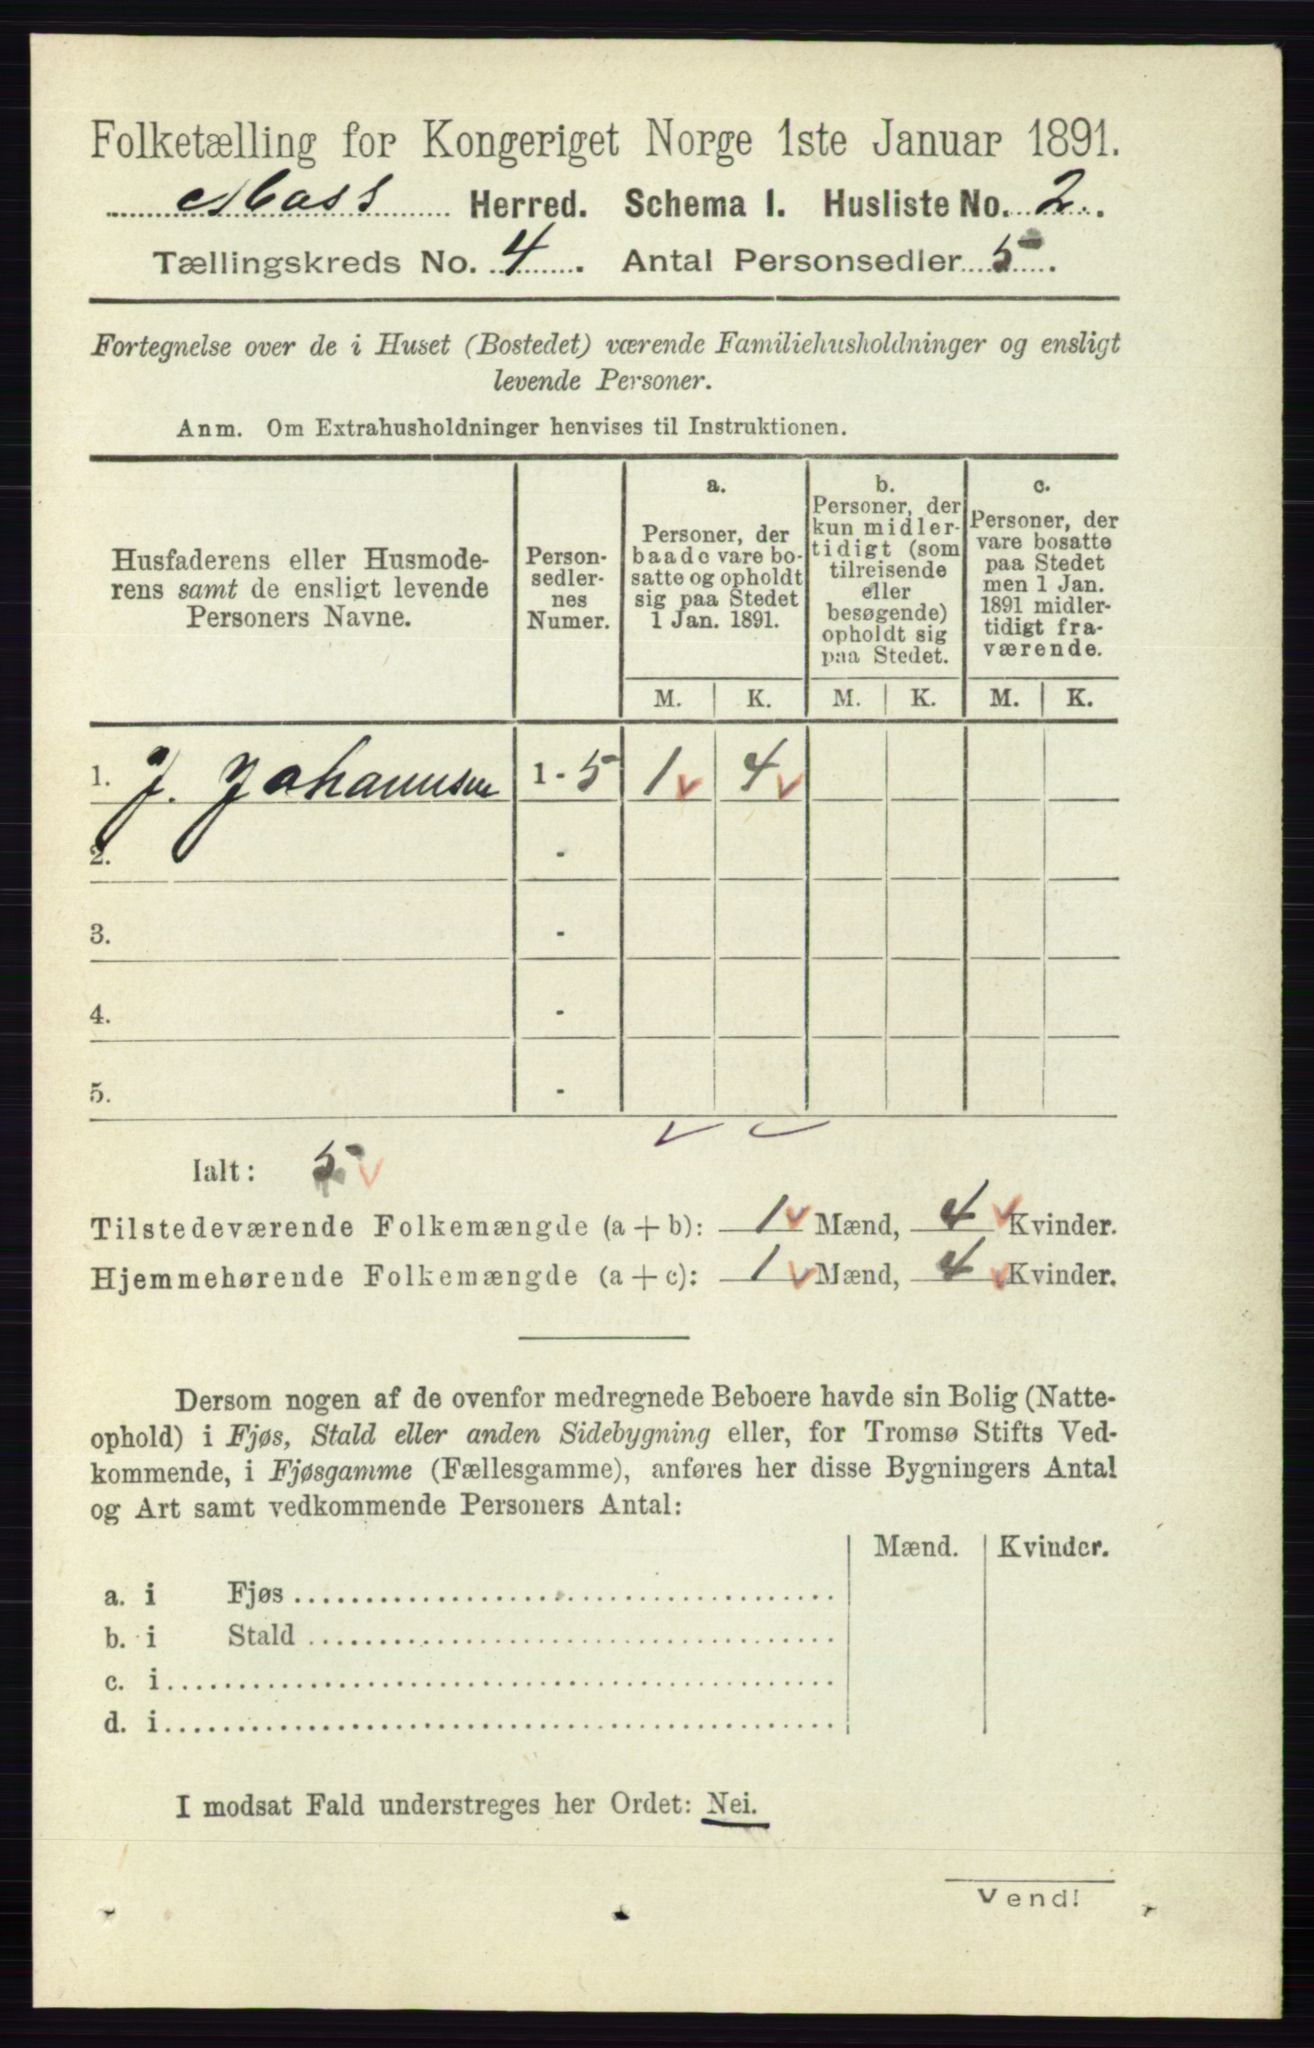 Folketælling for Kongeriget Norge 1ste Januar 1891.
Moss Herred. Schema I. Husliste No. 2.
Tællingskreds No. 4. Antal Personsedler 5.
Fortegnelse over de i Huset (Bostedet) værende Familiehusholdninger og ensligt
levende Personer.
Anm. Om Extrahusholdninger henvises til Instruktionen.
Husfaderens eller Husmode-
rens samt de ensligt levende
Personers Navne.
Person-
sedler-
nes
Numer.
a.
Personer, der
baade vare bo-
satte og opholdt
sig paa Stedet
1 Jan. 1891.
b.
Personer, der
kun midler-
tidigt (som
tilreisende
eller
besøgende)
opholdt sig
paa Stedet.
c.
Personer, der
vare bosatte
paa Stedet
men 1 Jan.
1891 midler-
tidigt fra-
værende.
M. K. M. K. M. K.
1. J. Johannsen 1 - 5 1 4
2. -
3. -
4. -
5. -
Ialt: 5
Tilstedeværende Folkemængde (a + b): 1 Mænd, 4 Kvinder.
Hjemmehørende Folkemængde (a + c): 1 Mænd, 4 Kvinder.
Dersom nogen af de ovenfor medregnede Beboere havde sin Bolig (Natte-
ophold) i Fjøs, Stald eller anden Sidebygning eller, for Tromsø Stifts Ved-
kommende, i Fjøsgamme (Fællesgamme), anføres her disse Bygningers Antal
og Art samt vedkommende Personers Antal:
Mænd. Kvinder.
a. i Fjøs
b. i Stald
c. i
d. i
I modsat Fald understreges her Ordet: Nei.
Vend!